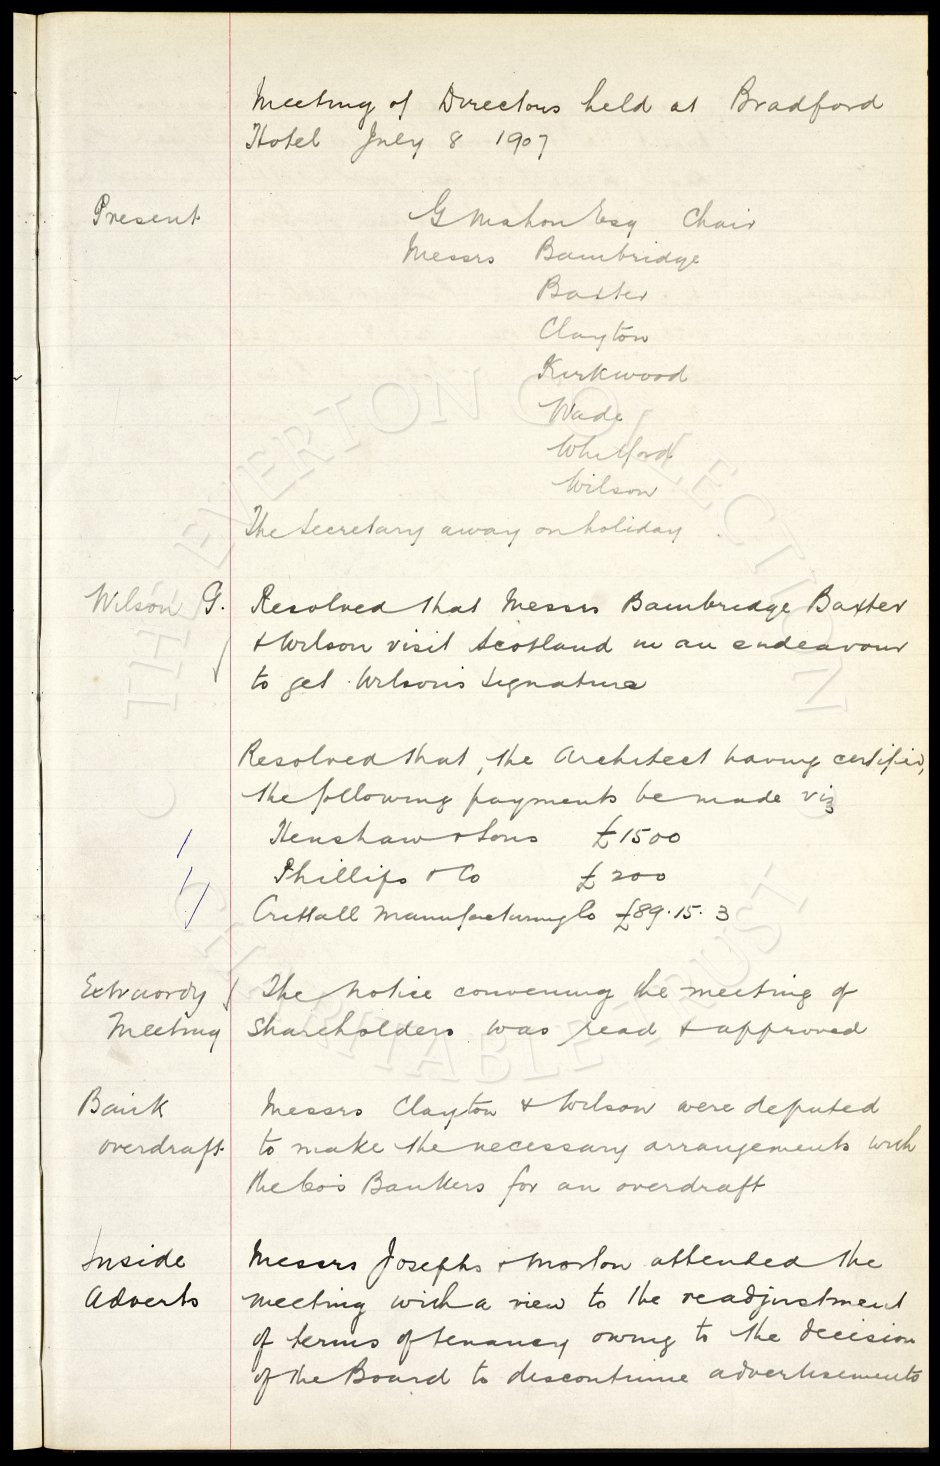 Meeting of Directors held at Bradford
Hotel July 8 1907
Present
G Mahon Esq Chair
Messrs Bainbridge
Baxter
Clayton
Kirkwood
Wade
Whitford
Wilson
The Secretary away on holiday
Wilson G. Resolved that Messrs Bainbridge Baxter
& Wilson visit Scotland in an endeavour
to get Wilson's signature
Resolved that, the Architect having certified,
the following payments be made viz
Henshaw & Sons £1500
Phillips & Co £200
Crittall Manufacturing Co £89.15.3
Extraordy The Notice convening the meeting of
Meeting Shareholders was read & approved
Bank Messrs Clayton & Wilson were deputed
overdraft to make the necessary arrangements with
the Co's Bankers for an overdraft
Inside Messrs Josephs & Morton attended the
Adverts meeting with a view to the readjustment
of terms of tenancy owing to the decision
of the Board to discontinue advertisements
THE EVERTON COLLECTION
CHARITABLE TRUST